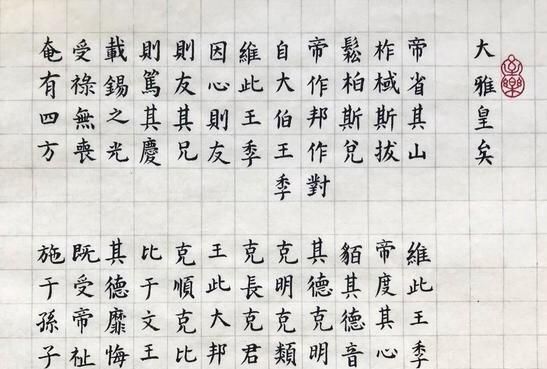 大雅皇矣
帝省其山
柞棫斯拔
鬆柏斯兌
帝作邦作對
自大伯王季
維此王季
因心則友
則友其兄
則篤其慶
載錫之光
受祿無喪
奄有四方
維此王季
帝度其心
貊其德音
其德克明
克明克類
克長克君
王此大邦
克順克比
比于文王
其德靡悔
既受帝祉
施于孫子